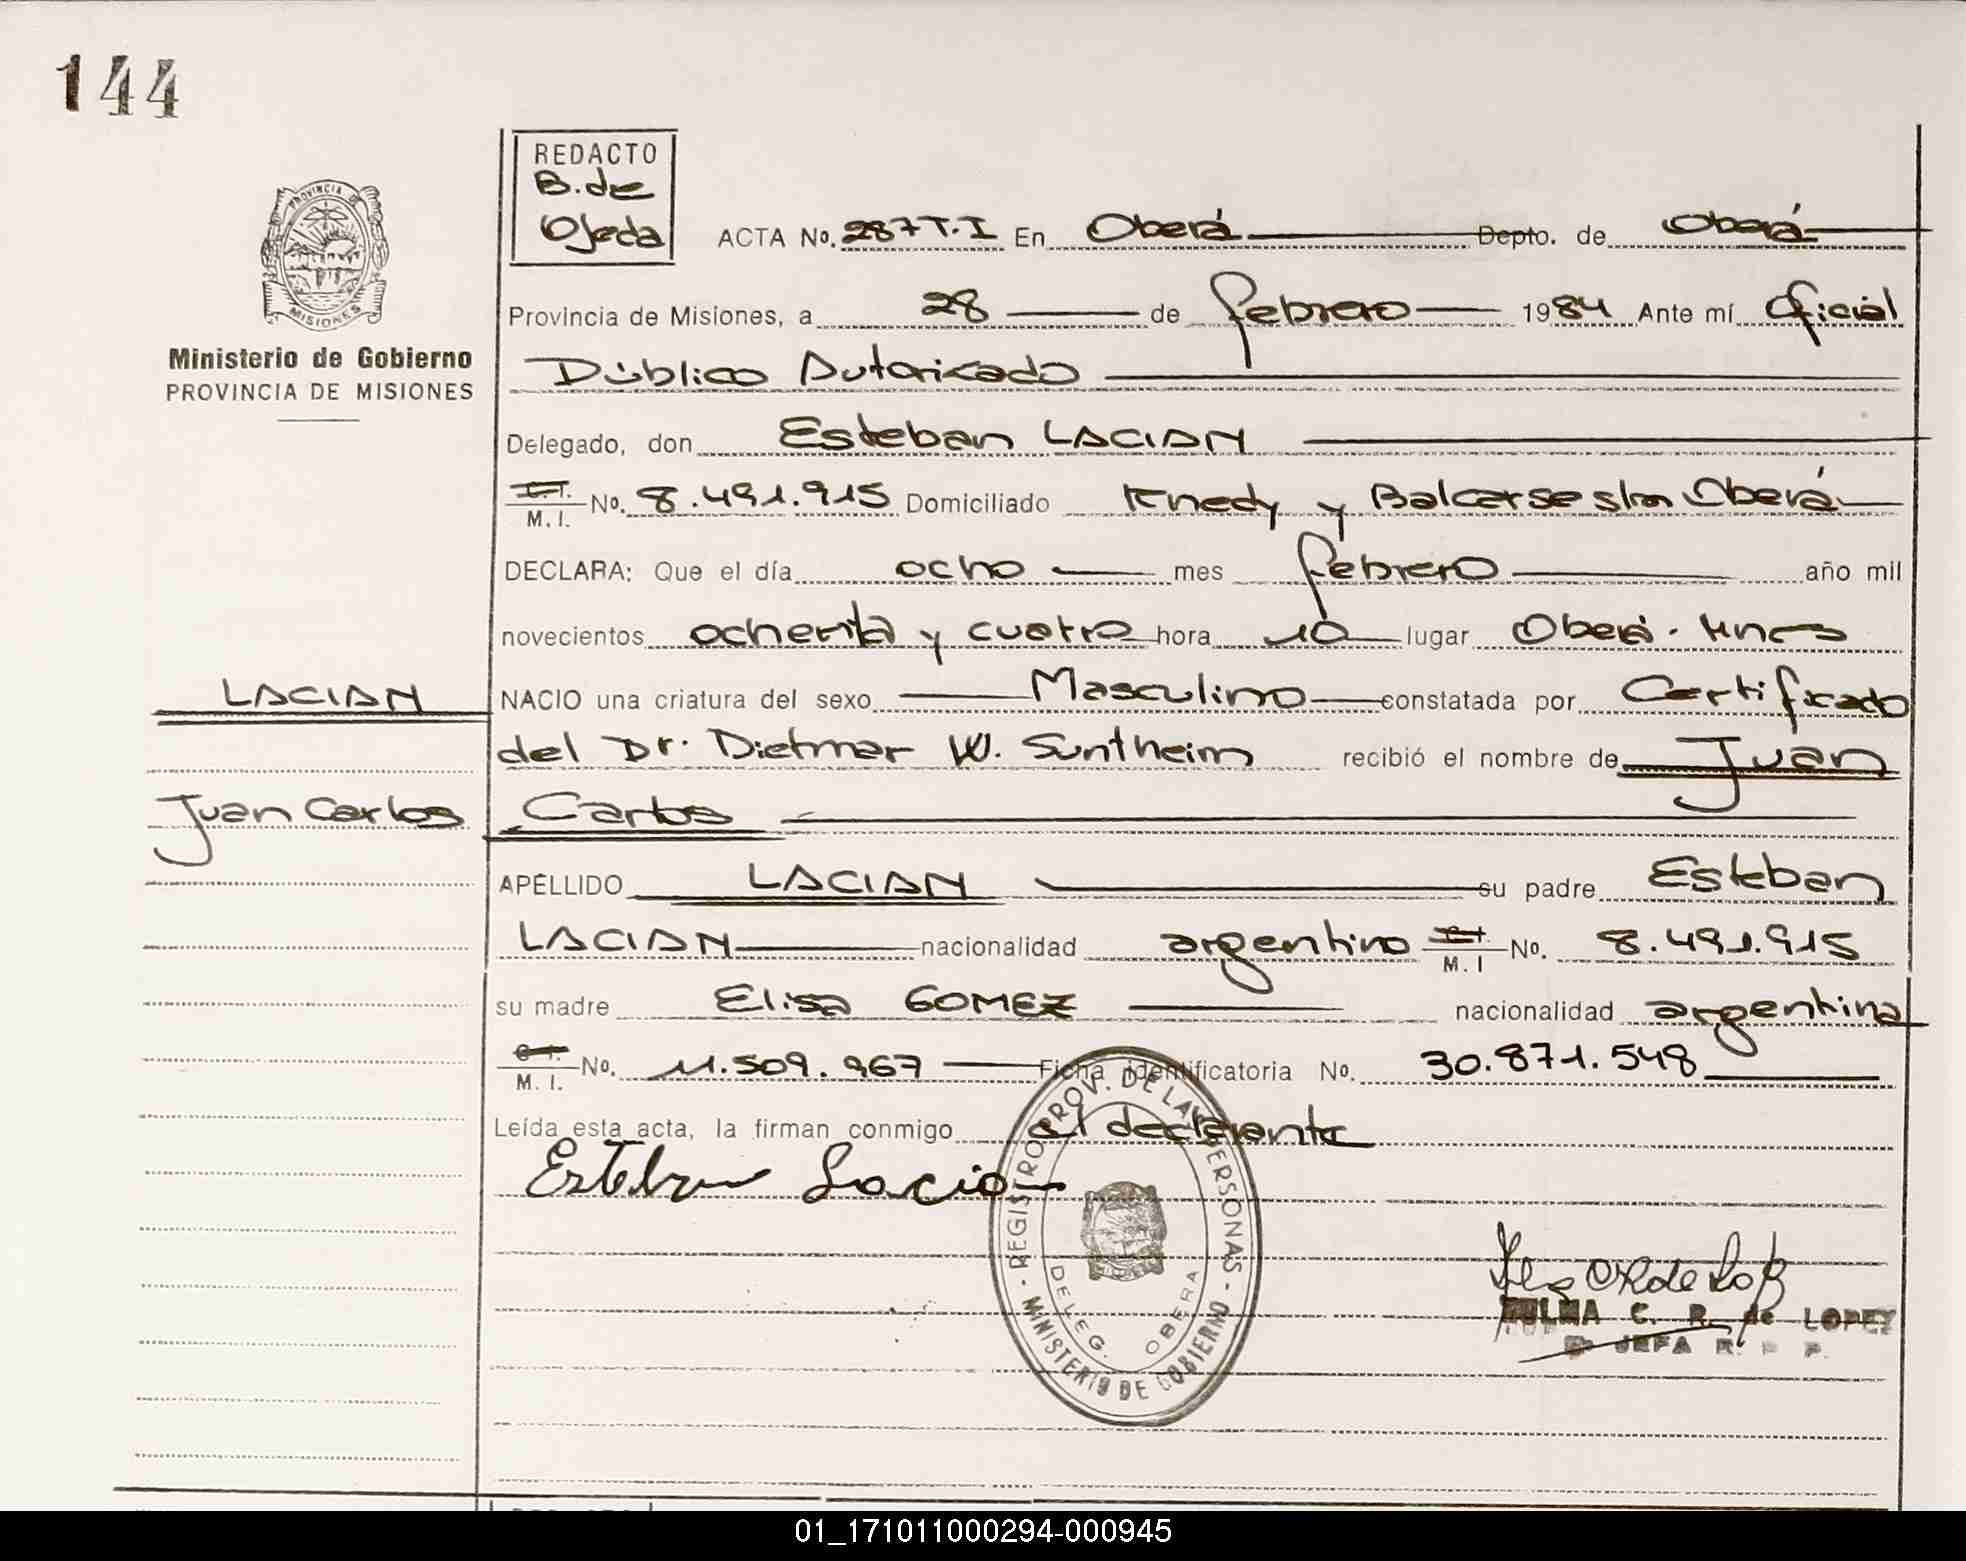 144
REDACTO
B. de
Ojeda
ACTA No. 287 T. I En Oberá Depto. de Oberá
PROVINCIA DE
MISIONES
Provincia de Misiones, a 28 de febrero 1984 Ante mí Oficial
Ministerio de Gobierno
PROVINCIA DE MISIONES
Público Autorizado
Delegado, don Esteban LACIAN
M. I. No. 8.491.915 Domiciliado Knedy y Balcarse s/n Oberá
DECLARA: Que el día ocho mes febrero año mil
novecientos ochenta y cuatro hora 10 lugar Oberá - Mnes
LACIAN
NACIO una criatura del sexo Masculino constatada por Certificado
del Dr. Dietmar W. Suntheim recibió el nombre de Juan
Juan Carlos
Carlos
APELLIDO LACIAN su padre Esteban
LACIAN nacionalidad argentino M. I No. 8.491.915
su madre Elisa GOMEZ nacionalidad argentina
M. I. No. 11.509.967 Ficha identificatoria No. 30.871.548
Leída esta acta, la firman conmigo el declarante
Esteban Lacian
REGISTRO PROV. DE LAS PERSONAS - MINISTERIO DE GOBIERNO -
DELEG. OBERA
C. R. de LOPEZ
JEFA R. P. P.
01_171011000294-000945